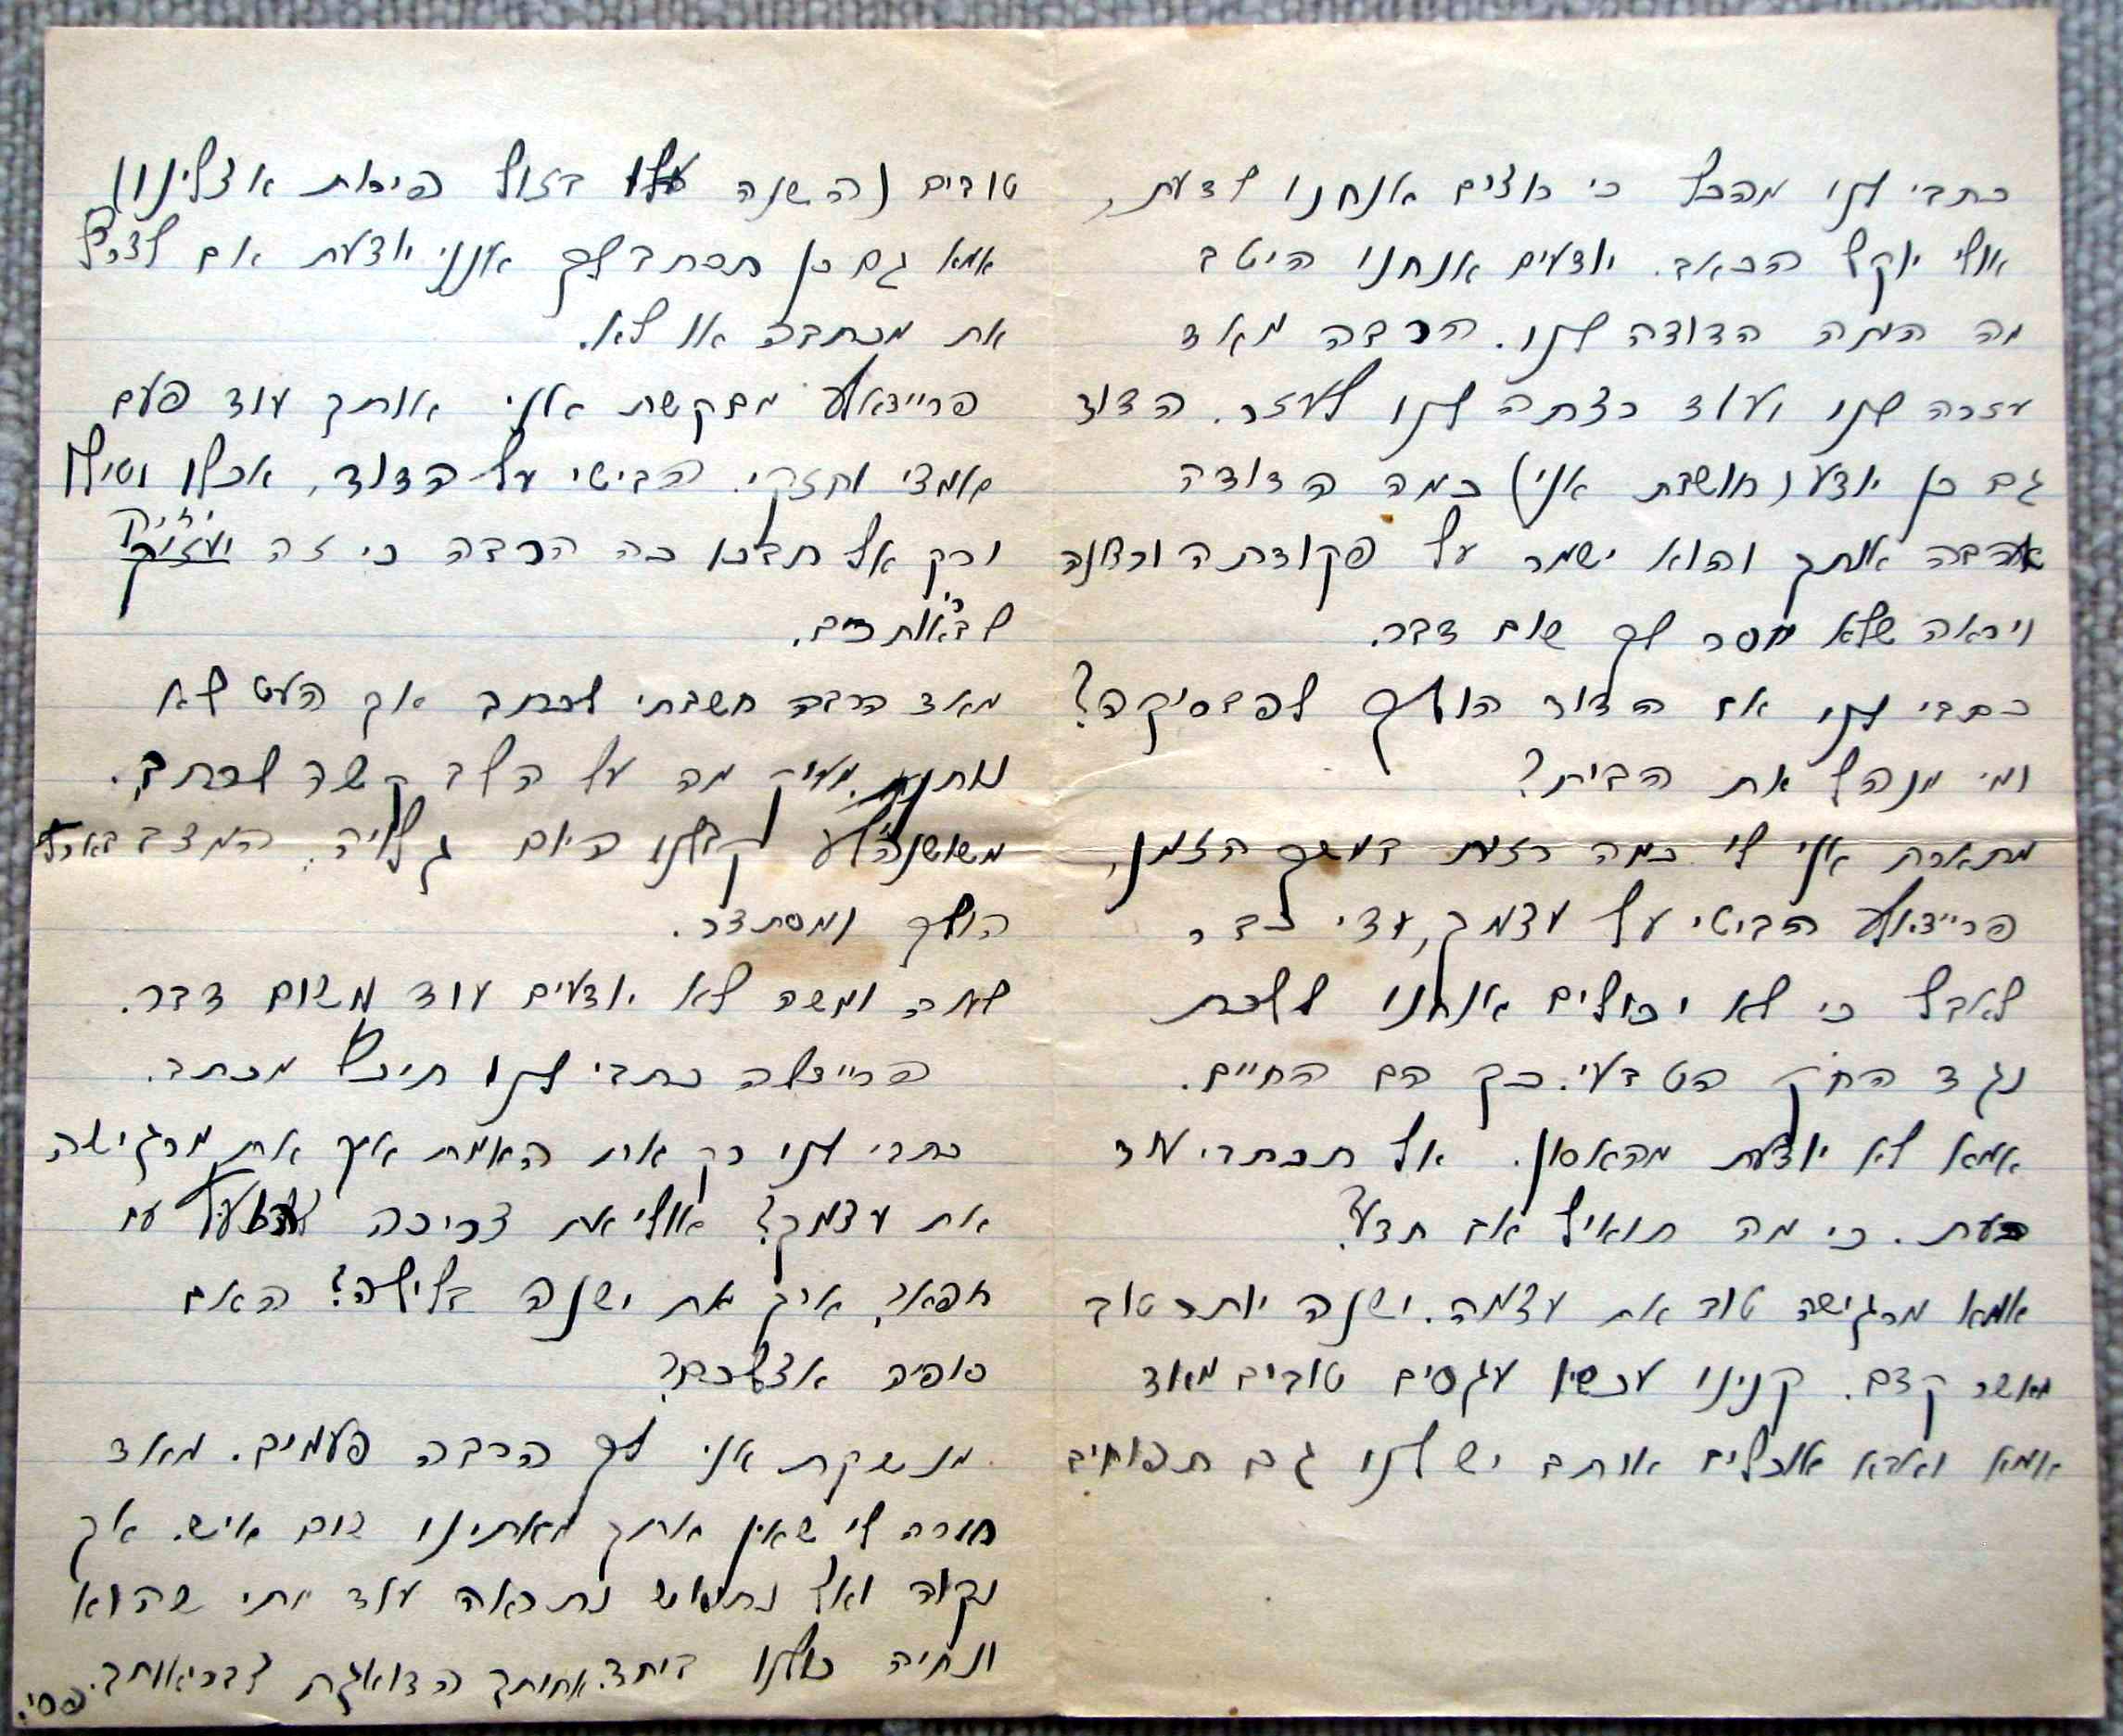 כתבי לנו מהכל כי רוצים אנחנו לדעת,
אולי יוקל הכאב. יודעים אנחנו היטב
מה היתה הדודה לנו. הרבה מאד
עזרה לנו ועוד רצתה לנו לעזר. הדוד
גם כן יודע (חושבת אני) כמה הדודה
אהבה אותך והוא ישמר על פקודתה ורצונה
ויראה שלא יחסר לך שום דבר.
כתבי לנו אם הדוד הולך לפבריקה?
ומי מנהל את הבית?
מתארת אני לי כמה רזית במשך הזמן,
פריידאלע הביטי על עצמך, די כבר
לאבל כי לא יכולים אנחנו ללכת
נגד החק הטבעי. כך הם החיים.
אמא לא יודעת מהאסון. אל תכתבי עוד
כעת. כי מה תואיל אם תדע?
אמא מרגישה טוב את עצמה. ישנה יותר טוב
מאשר קדם. קנינו עכשיו עגסים טובים מאוד
אמא ואבא אוכלים אותם יש לנו גם תפוחים
טובים (השנה בזול פירות אצלינו)
אמא גם כן תכתב לך אינני יודעת אם לצרף
את מכתבה או לא.
פריידאלע מבקשת אני אותך עוד פעם
אמצי וחזקי. הביטי על הדוד, אכלו וטילו
ורק אל תבכו כה הרבה כי זה יזיק
לבריאותכם.
מאד הרבה חשבתי לכתב אך העט לא
נותנת. מעיק מה על הלב קשה לכתב.
משושנה'לע קבלנו היום גלויה. המצב בארץ
הולך ומסתדר.
לאה ומשה לא יודעים עוד משום דבר.
פריידלה כתבי לנו תיכף מכתב.
כתבי לנו רק את האמת איך את מרגישה
את עצמך? אולי את צריכה עם
רופא, איך את ישנה בלילה? האם
סופיה אצלכם?
מנשקת אני לך הרבה פעמים. מאד
חורה לי שאין אתך מאתינו שום איש. אך
נקוה ואל נתיאש נתראה עוד מתי שהוא
ונחיה כולנו ביחד. אחותך הדואגת לבריאותך.
פסי.